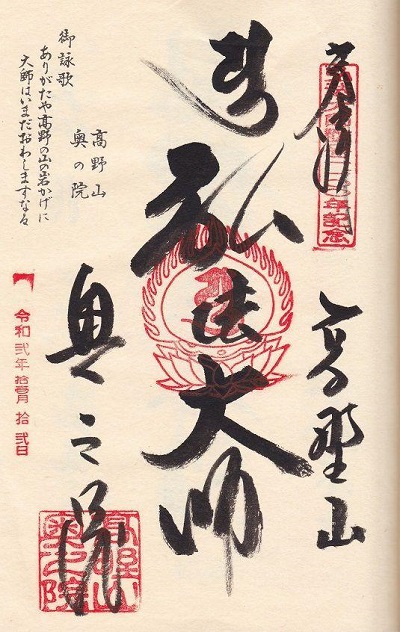 奉拝
年記念
高野山
弘法大師
奥之院
高野山
奥之院
御詠歌
ありがたや高野の山の岩かげに
大師はいまだおわしますなる
高野山
奥の院
令和弐年拾壱月拾弐日